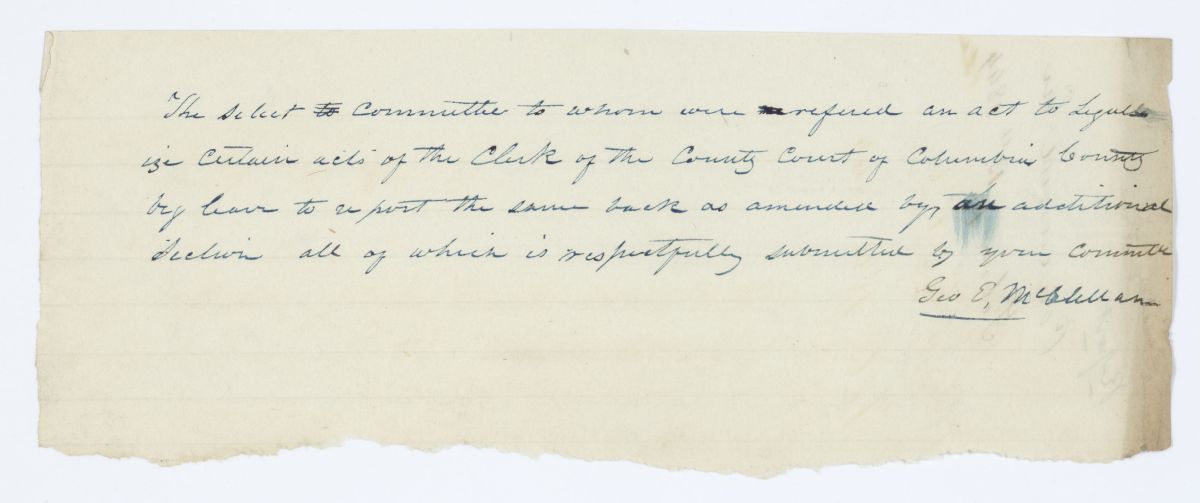 The select to committee to whom were refered an act to Legal
ize certain acts of the Clerk of the County Court of Columbia County
beg leave to report the same back as amended by, an additional
Section all of which is respectfully submitted by your committe
Geo E. McClellan